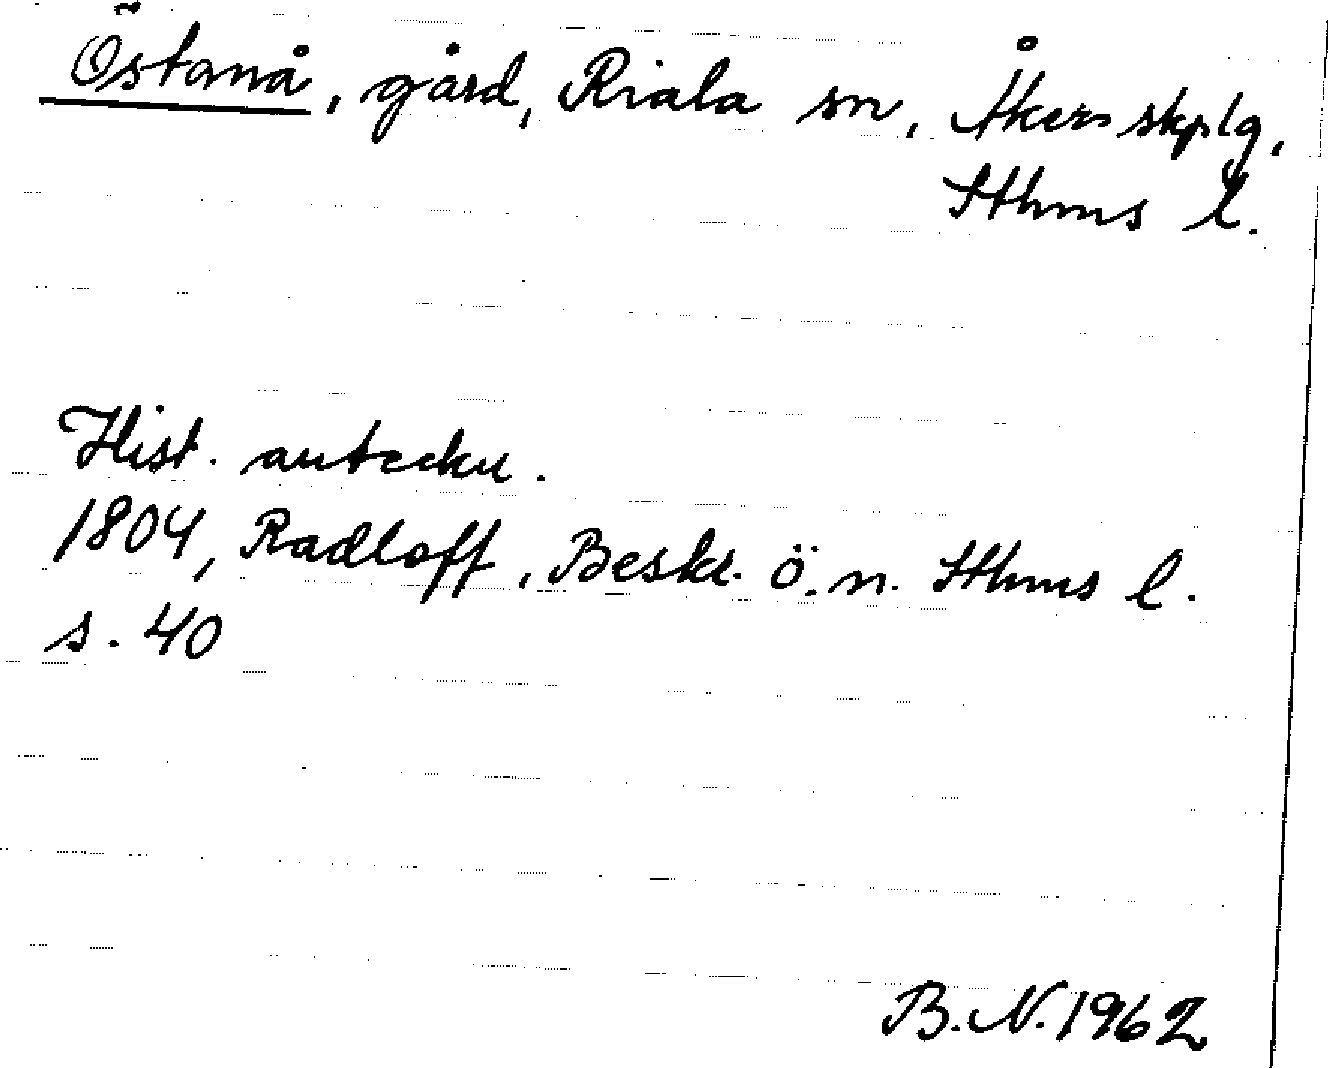 Östanå, gård, Riala sn, Åkers skplg,
Sthms l.
Hist. anteckn.
1804, Radloff, Beskr. ö. n. Sthms l.
s. 40
B.N. 1962